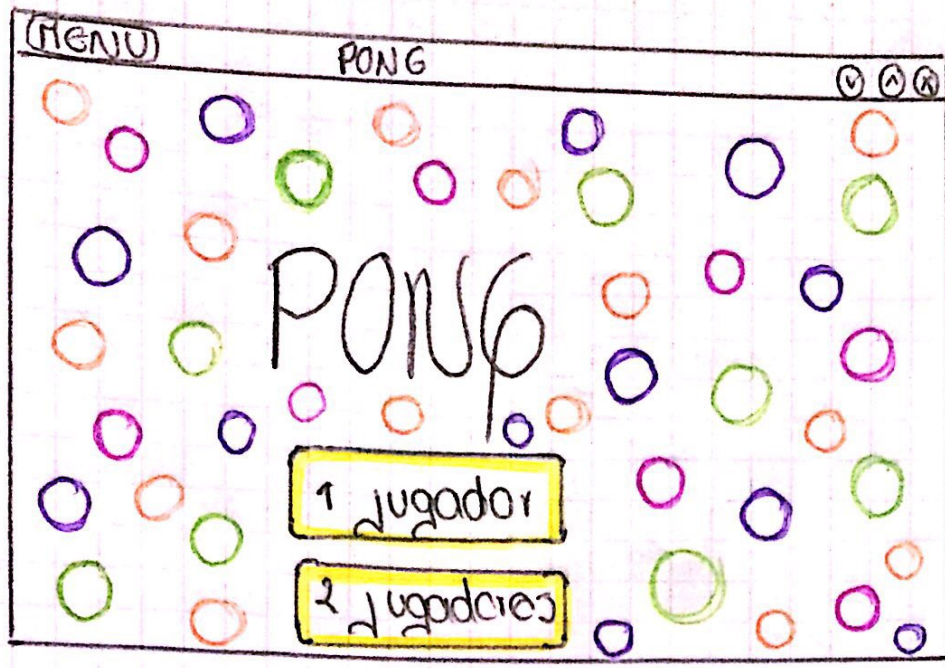 MENU
PONG
PONG
1 jugador
2 jugadores